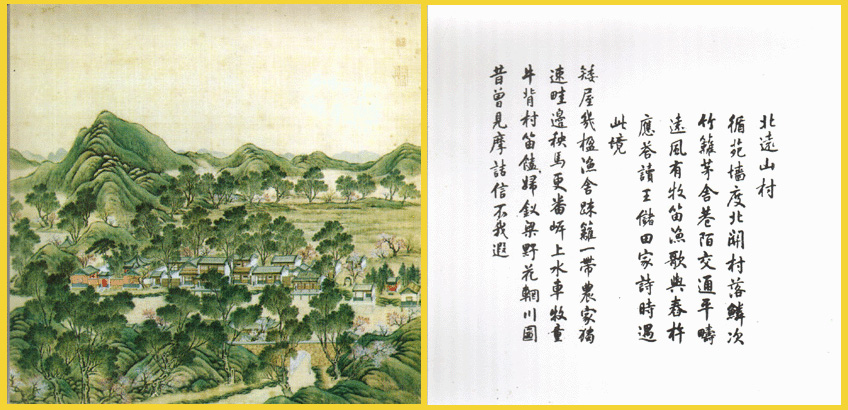 北遠山村
循苑墻度北關村落鱗次
竹籬茅舍巷陌交通平疇
遠風有牧笛漁歌與舂杵
應荅讀王儲田家詩時遇
此境
矮屋幾楹漁舍疎籬一帶農家獨
速畦邊秧馬更番岸上水車牧童
牛背村笛饁婦釵梁野花輞川圖
昔曾見摩詰信不我遐